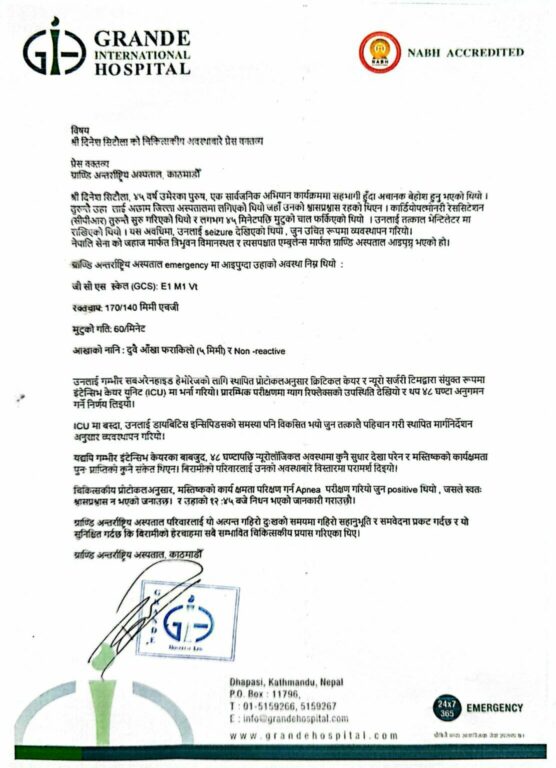 GRANDE
INTERNATIONAL
HOSPITAL
NABH
NABH ACCREDITED
विषय
श्री दिनेश सिटौला को चिकित्सकीय अवस्थाबारे प्रेस वक्तव्य
प्रेस वक्तव्य
ग्राण्डि अन्तर्राष्ट्रिय अस्पताल, काठमाडौँ
श्री दिनेश सिटौला, ४५ वर्ष उमेरका पुरुष, एक सार्वजनिक अभियान कार्यक्रममा सहभागी हुँदा अचानक बेहोश हुनु भएको थियो ।
तुरुन्तै उहा लाई अछाम जिल्ला अस्पतालमा लगिएको थियो जहाँ उनको श्वासप्रश्वास रहको थिएन । कार्डियोपल्मोनरी रेससिटेशन
(सीपीआर) तुरुन्तै सुरु गरिएको थियो र लगभग ४५ मिनेटपछि मुटुको चाल फर्किएको थियो । उनलाई तत्काल भेन्टिलेटर मा
राखिएको थियो । यस अवधिमा, उनलाई seizure देखिएको थियो , जुन उचित रूपमा व्यवस्थापन गरियो।
नेपालि सेना को जहाज मार्फत त्रिभुवन विमानस्थल र त्यसपश्चात एम्बुलेन्स मार्फत ग्राण्डि अस्पताल आइपुग्नु भएको हो।
ग्राण्डि अन्तर्राष्ट्रिय अस्पताल emergency मा आइपुग्दा उहाको अवस्था निम्न थियो :
जी सी एस स्केल (GCS): E1 M1 Vt
रक्तचाप: 170/140 मिमी एचजी
मुटुको गति: 60/मिनेट
आखाको नानि : दुवै आँखा फराकिलो (५ मिमी) र Non -reactive
उनलाई गम्भीर सबअरेनहाइड हेमोरेजको लागि स्थापित प्रोटोकलअनुसार क्रिटिकल केयर र न्यूरो सर्जरी टिमद्वारा संयुक्त रूपमा
इंटेन्सिभ केयर युनिट (ICU) मा भर्ना गरियो। प्रारम्भिक परीक्षणमा ग्याग रिफ्लेक्सको उपस्थिति देखियो र थप ४८ घण्टा अनुगमन
गर्ने निर्णय लिइयो।
ICU मा बस्दा, उनलाई डायबिटिस इन्सिपिडसको समस्या पनि विकसित भयो जुन तत्काले पहिचान गरी स्थापित मार्गनिर्देशन
अनुसार व्यवस्थापन गरियो।
यद्यपि गम्भीर इंटेन्सिभ केयरका बाबजुद, ४८ घण्टापछि न्यूरोलोजिकल अवस्थामा कुनै सुधार देखा परेन र मस्तिष्कको कार्यक्षमता
पुनः प्राप्तिको कुनै संकेत थिएन। बिरामीको परिवारलाई उनको अवस्थाबारे विस्तारमा परामर्श दिइयो।
चिकित्सकीय प्रोटोकलअनुसार, मस्तिष्कको कार्य क्षमता परिक्षण गर्न Apnea परीक्षण गरियो जुन positive थियो , जसले स्वतः
श्वासप्रश्वास न भएको जनाउछ। र उहाको १२ :४५ बजे निधन भएको जानकारी गराउछौ।
ग्राण्डि अन्तर्राष्ट्रिय अस्पताल परिवारलाई यो अत्यन्त गहिरो दुःखको समयमा गहिरो सहानुभूति र समवेदना प्रकट गर्दछ र यो
सुनिश्चित गर्दछ कि बिरामीको हेरचाहमा सबै सम्भावित चिकित्सकीय प्रयास गरिएका थिए।
ग्राण्डि अन्तर्राष्ट्रिय अस्पताल, काठमाडौँ
GRANDE
HOSPITAL LTD
Dhapasi, Kathmandu, Nepal
P.O. Box : 11796,
T : 01-5159266, 5159267
E : info@grandehospital.com
www.grandehospital.com
24x7
365
EMERGENCY